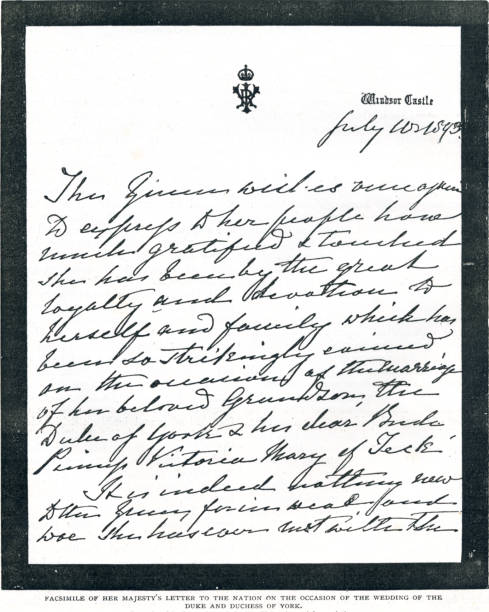 Windsor Castle
July 10. 1893.
The Queen wishes once again
to express to her people how
much gratified & touched
she has been by the great
loyalty and devotion to
herself and family which has
been so strikingly evinced
on the occasion of the marriage
of her beloved Grandson, the
Duke of York & his dear Bride
Princess Victoria Mary of Teck.
It is indeed nothing new
to the Queen for in weal and
woe she has ever met with the
FACSIMILE OF HER MAJESTY'S LETTER TO THE NATION ON THE OCCASION OF THE WEDDING OF THE
DUKE AND DUCHESS OF YORK.